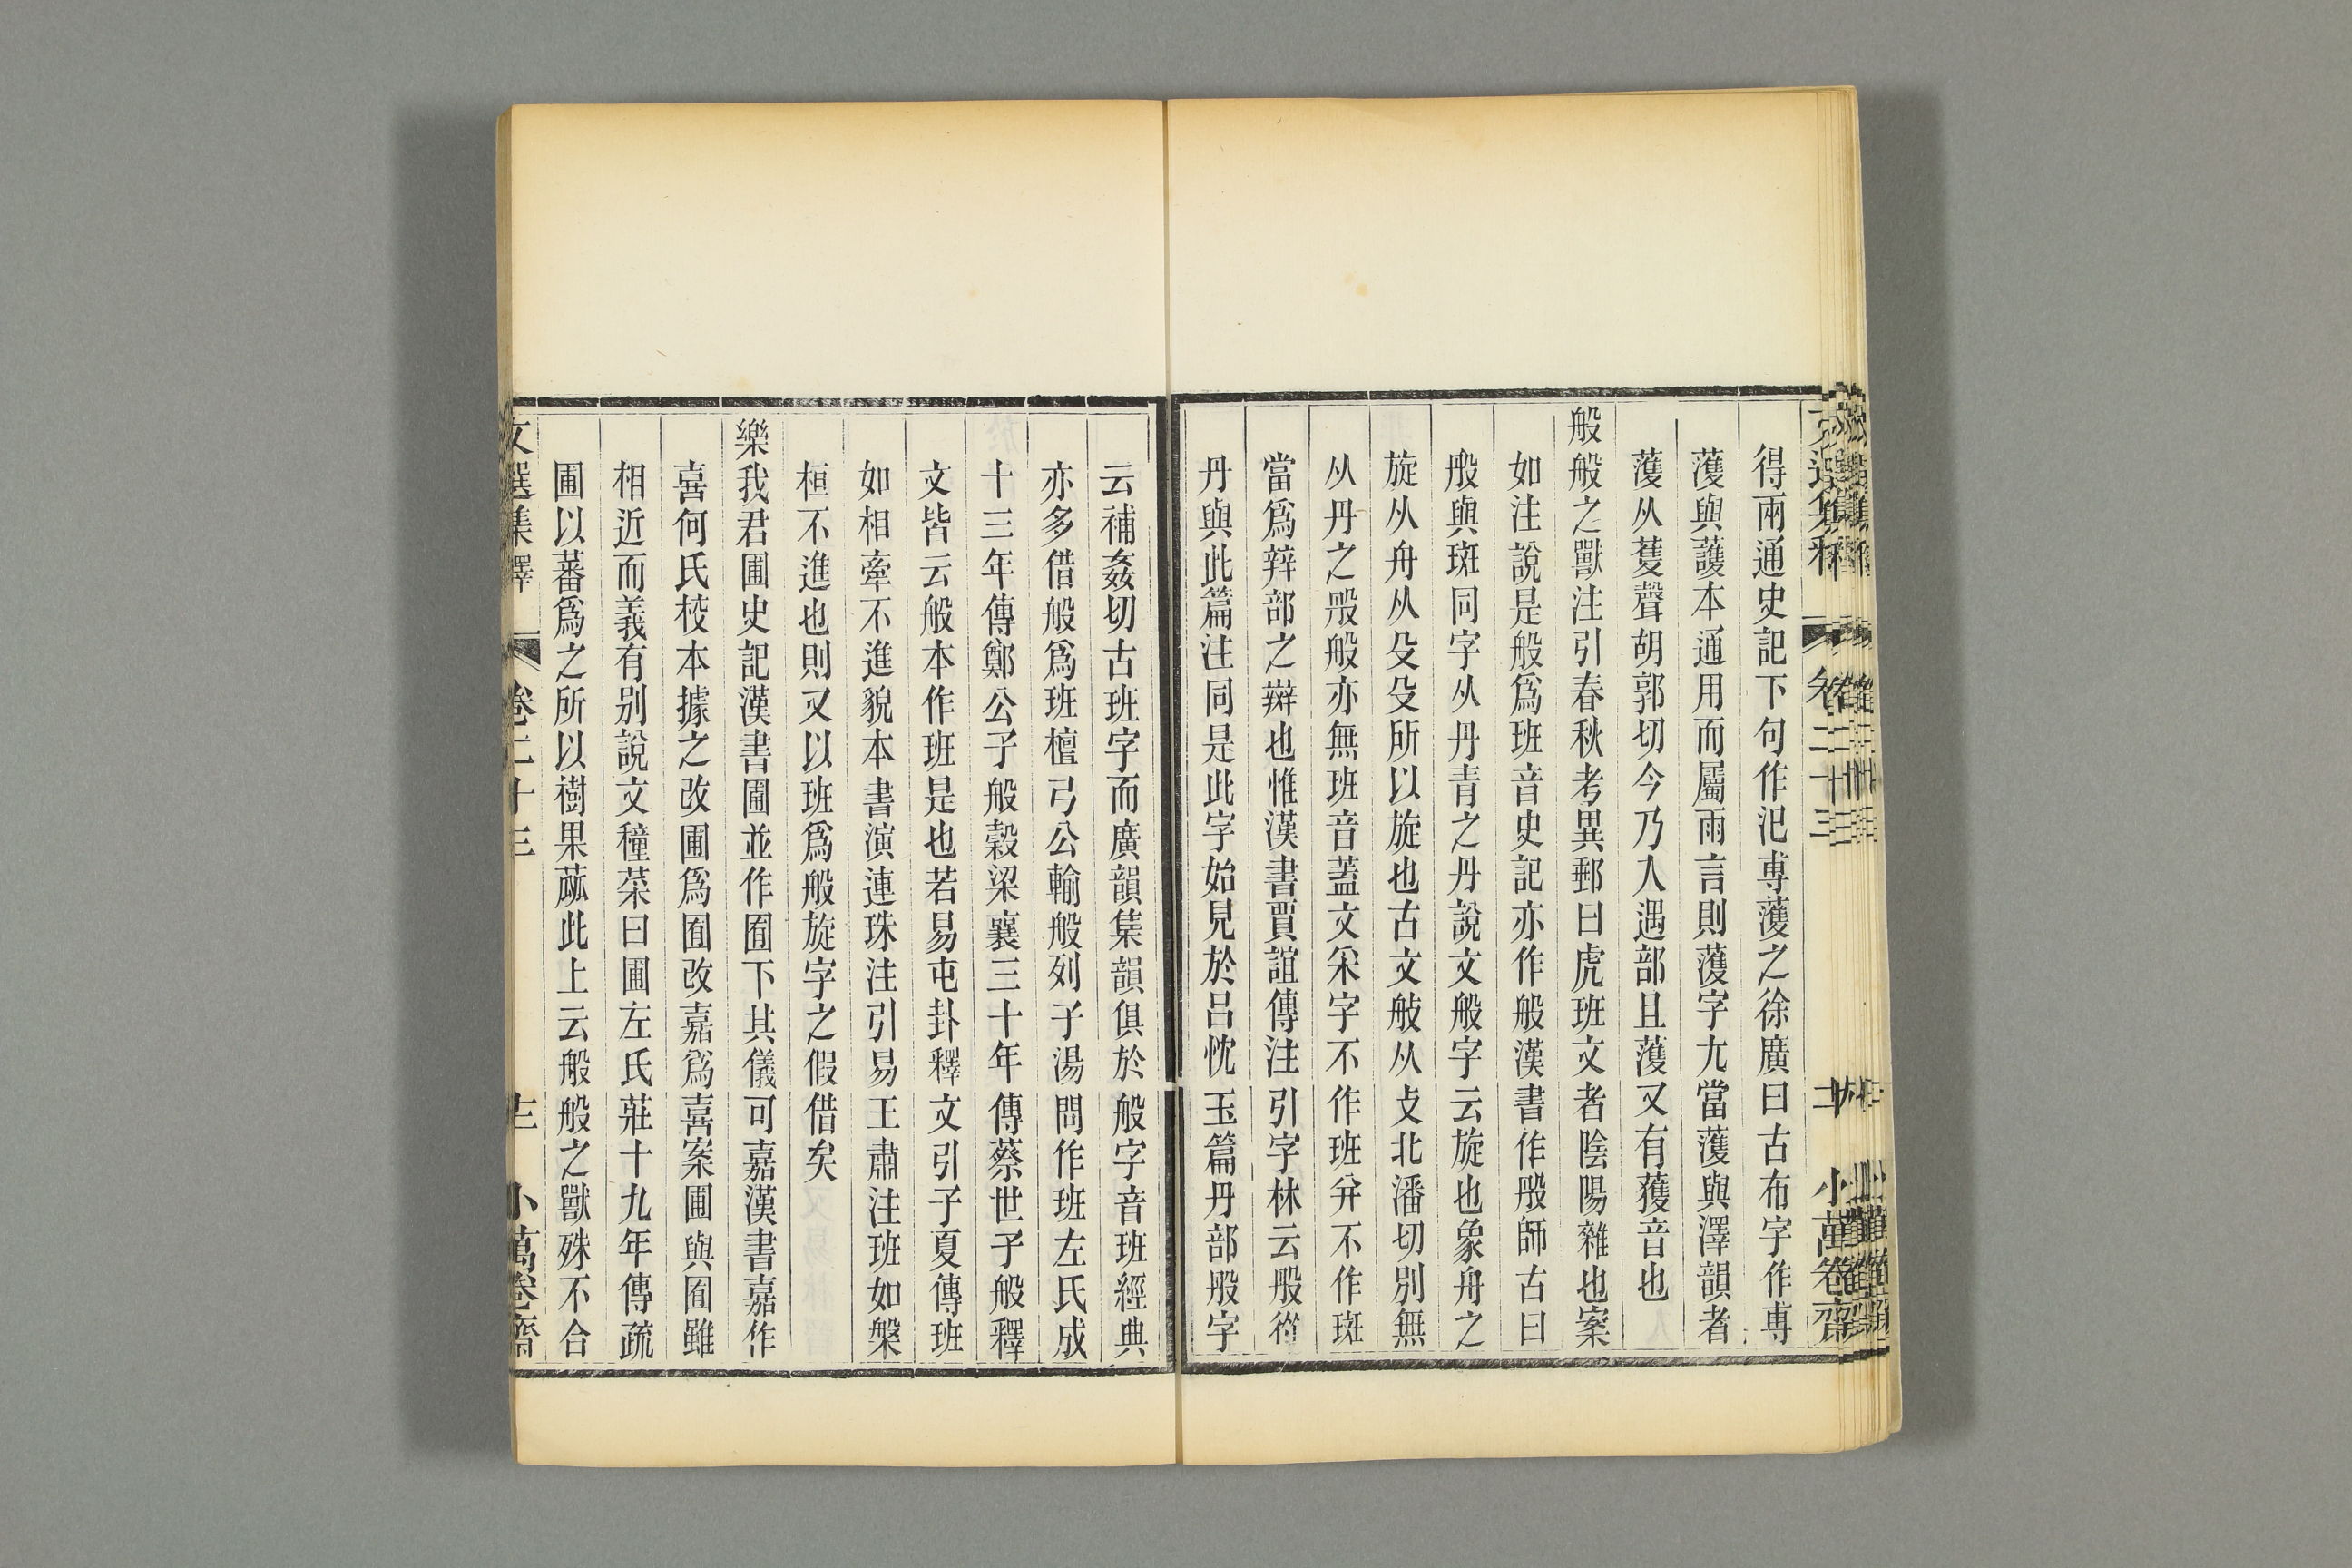 得兩通史記下句作氾尃濩之徐廣曰古布字作尃
濩與頀本通用而屬雨言則濩字尢當濩與澤韻者
濩从蒦聲胡郭切今乃入遇部且濩又有蒦音也
般般之獸注引春秋考異郵曰虎班文者陰陽雜也案
如注說是般爲班音史記亦作般漢書作㿪師古曰
㿪與斑同字从丹青之丹說文般字云旋也象舟之
旋从舟从殳殳所以旋也古文㪏从攴北潘切別無
从丹之㿪般亦無班音蓋文采字不作班并不作斑
當爲辬部之辬也惟漢書賈誼傳注引字林云㿪
丹與此篇注同是此字始見於呂忱玉篇丹部㿪字
云補姦切古班字而廣韻集韻俱於般字音班經典
亦多借般爲班檀弓公輸般列子湯問作班左氏成
十三年傳鄭公子般穀梁襄三十年傳蔡世子般釋
文皆云般本作班是也若易屯卦釋文引子夏傳班
如相牽不進貌本書演連珠注引易王肅注班如槃
桓不進也則又以班爲般旋字之假借矣
樂我君圃史記漢書圃並作囿下其儀可嘉漢書嘉作
喜何氏校本據之改圃爲囿改嘉爲喜案圃與囿雖
相近而義有別說文種菜曰圃左氏莊十九年傳疏
圃以蕃爲之所以樹果蓏此上云般般之獸殊不合
文選集釋
卷二十三
小萬卷齋